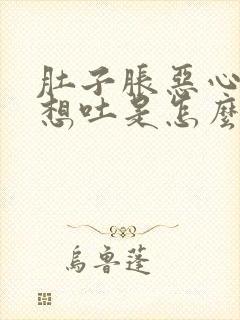 肚子脹惡心
想吐是怎麼
烏魯蓬